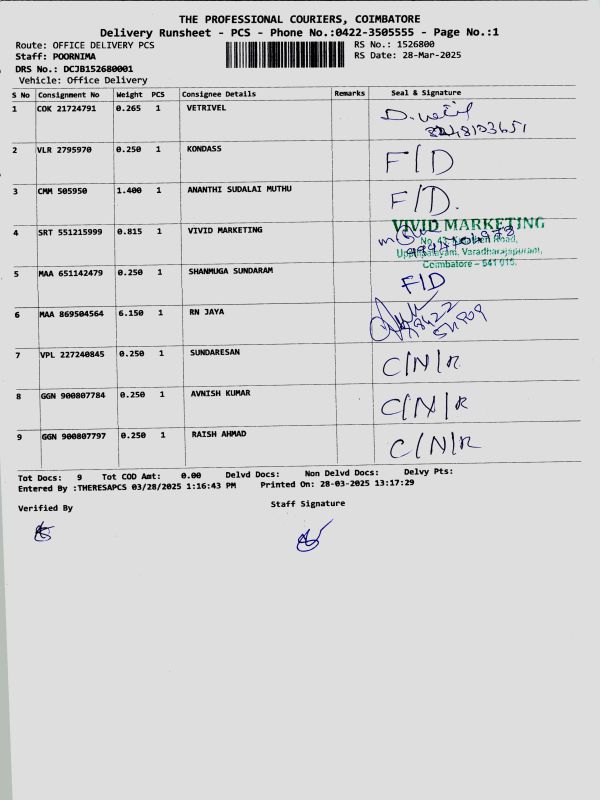 THE PROFESSIONAL COURIERS, COIMBATORE
Delivery Runsheet - PCS - Phone No.:0422-3505555 - Page No.:1
Route: OFFICE DELIVERY PCS RS No.: 1526800
Staff: POORNIMA RS Date: 28-Mar-2025
DRS No.: DCJB152680001
Vehicle: Office Delivery
S No Consignment No Weight PCS Consignee Details Remarks Seal & Signature
1 COK 21724791 0.265 1 VETRIVEL
2 VLR 2795970 0.250 1 KONDASS F/D
3 CMM 505950 1.400 1 ANANTHI SUDALAI MUTHU F/D.
4 SRT 551215999 0.815 1 VIVID MARKETING VIVID MARKETING
Coimbatore - 641 015.
5 MAA 651142479 0.250 1 SHANMUGA SUNDARAM F/D
6 MAA 869504564 6.150 1 RN JAYA
7 VPL 227240845 0.250 1 SUNDARESAN C/N/R
8 GGN 900807784 0.250 1 AVNISH KUMAR C/N/R
9 GGN 900807797 0.250 1 RAISH AHMAD C/N/R
Tot Docs: 9 Tot COD Amt: 0.00 Delvd Docs: Non Delvd Docs: Delvy Pts:
Entered By :THERESAPCS 03/28/2025 1:16:43 PM Printed On: 28-03-2025 13:17:29
Verified By Staff Signature